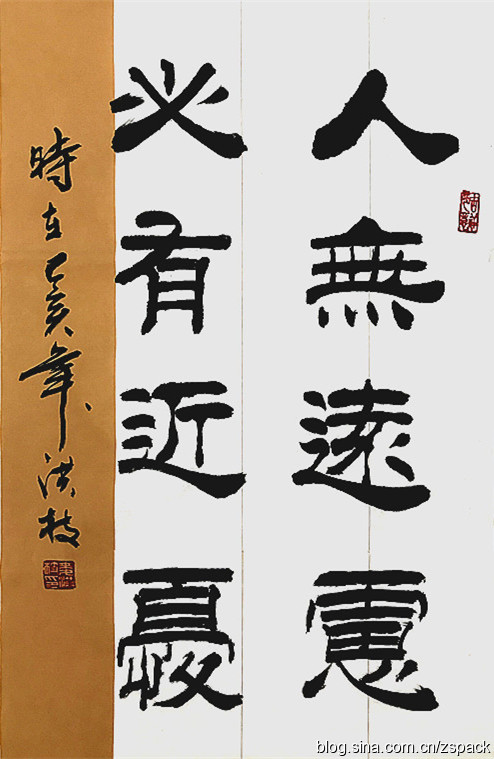 人無遠慮
必有近憂
時在己亥年洪枝
blog.sina.com.cn/zspack